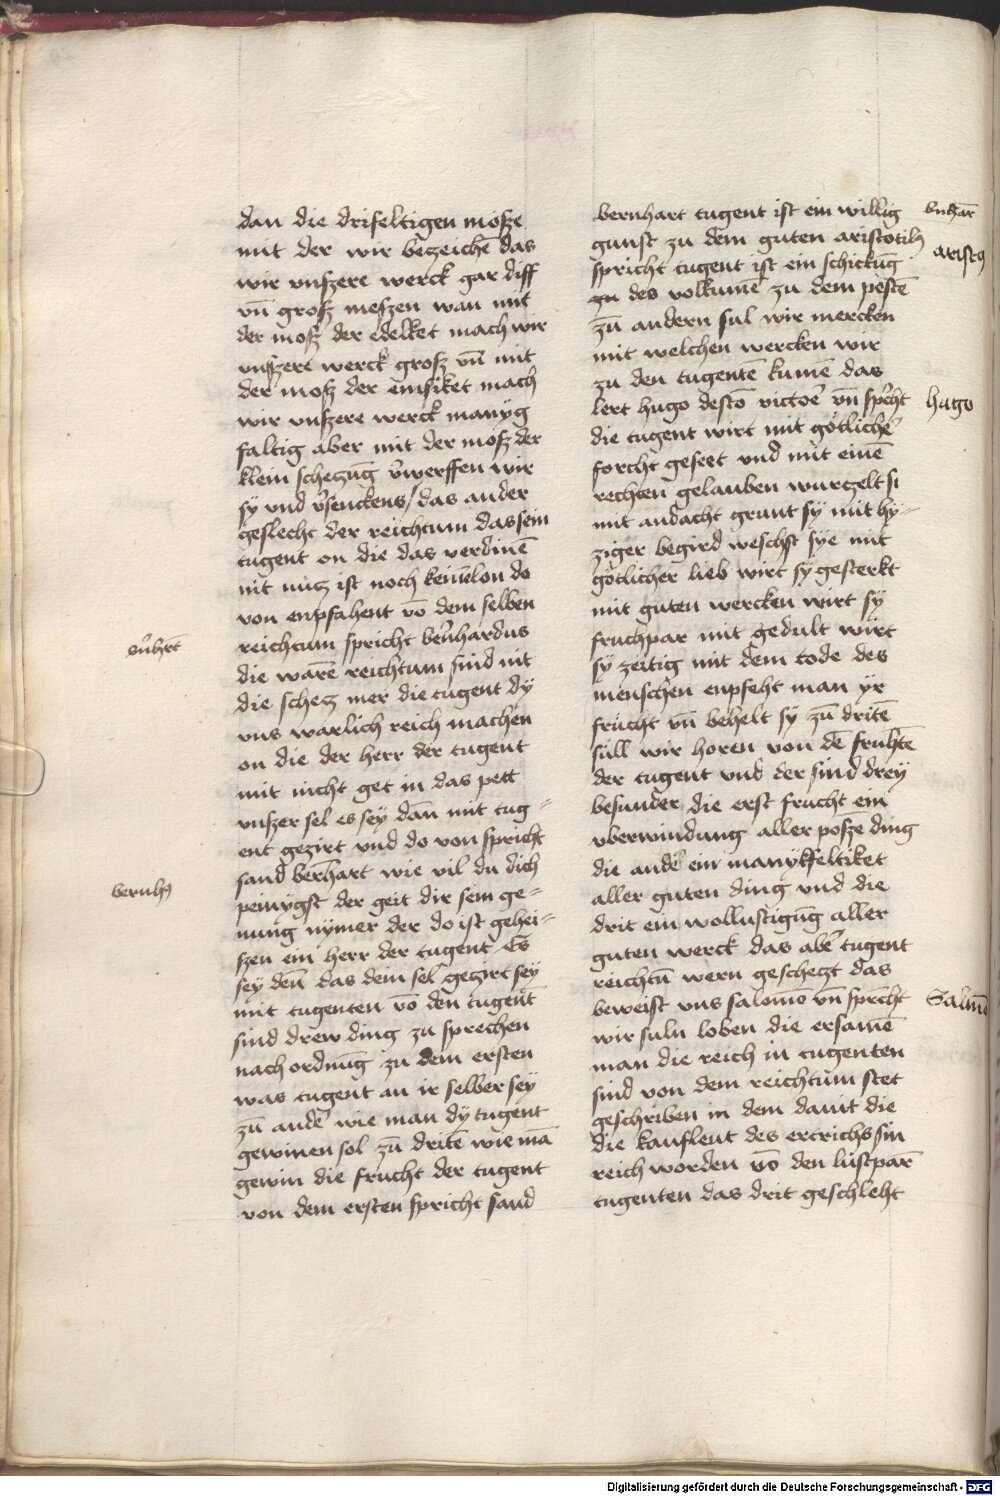 dan die drifeltigen mosze
mit der wir bezeichē das
wir vnszere werck gar diff
vn̄ grosz meszen wan mit
der mosz der edelket mach wir
vnszere werck grosz vn̄ mit
der mosz der emsiket mach
wir vnszere werck manyg
faltig aber mit der mosz der
klein schetzūg v̄werffen wir
sy vnd v̄senckens / das ander
geslecht der reichtum das sein
tugent on die das verdinē
nit nutz ist noch keinē lon do
von enpfahent vō dem selben
reichtum spricht bern̄hardus
die warē reichtum sind nit
die schetz mer die tugent dy
vns warlich reich machen
on die der herr der tugent
mit nicht get in das pett
vnszer sel es sey dan̄ mit tug=
ent gezirt vnd do von spricht
sand bern̄hart wie vil du dich
peinygst der geit dir sein ge=
nung nymer der do ist gehei=
szen ein herr der tugent Es
sey den̄ das dein sel gezirt sey
mit tugenten vō den tugent
sind drew ding zu sprechen
nach ordnūg zu dem ersten
was tugent an ir selber sey
zū andē wie man dy tugent
gewinen sol zū dritē wie mā
gewin die frucht der tugent
von dem ersten spricht sand
bern̄hrt
bernh9
bernhart tugent ist ein willig
gunst zu dem guten aristotil9
spricht tugent ist ein schickūg
zu des volkumē zu dem pestē
zū andern sul wir mercken
mit welchen wercken wir
zu den tugentē kumē das
lert hugo destō victorē vn̄ sp̄cht
die tugent wirt mit götlichē
forcht geseet vnd mit einē
rechten gelauben wurtzelt si
mit andacht grunt sy mit hy=
ziger begird weschst sye mit
götlicher lieb wirt sy gesterkt
mit guten wercken wirt sy
fruchpar mit gedult wirt
sy zeitig mit dem tode des
menschen enpfeht man yr
frücht vn̄ behelt sy zū dritē
süll wir horen von dē fruhtē
der tugent vnd der sind drey
besunder die erst frucht ein
vberwindung aller posze ding
die andē ein manykfeltiket
aller guten ding vnd die
drit ein wollustigūg aller
guten werck das abē tugent
reichtū wern geschetzt das
beweist vns salomō vn̄ sprcht
wir suln loben die ersamē
man die reich in tugenten
sind von dem reichtum stet
geschriben in dem damit die
die kauflent des ertrichs sin
reich worden vō den lustpar
tugenten das drit geschleht
aristo9
hugo
Salmō
Digitalisierung gefördert durch die Deutsche Forschungsgemeinschaft - DFG